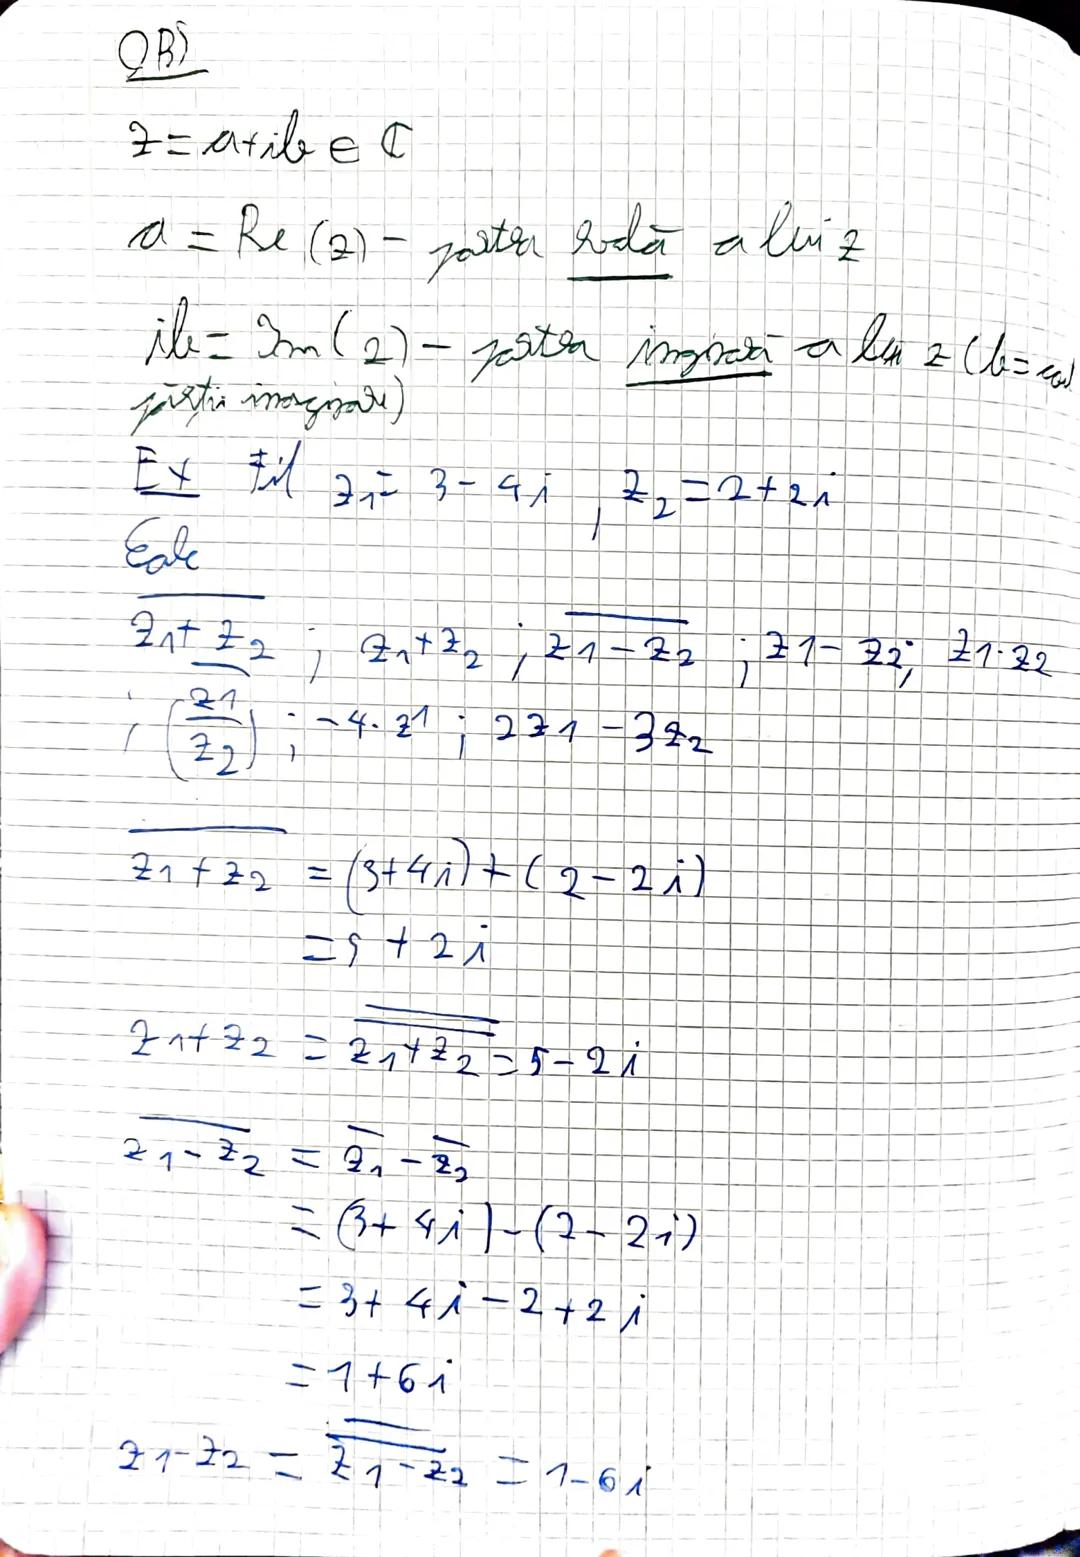 OB)
z = a+ib ∈ ℂ
a = Re(z) - partea reală a lui z
ib = Im(z) - partea imaginară a lui z (b = coef
părții imaginare)
Ex Fie z₁ = 3 - 4i , z₂ = 2 + 2i
Calc
\overline{z₁ + z₂} ; z₁ + z₂ ; \overline{z1 - z₂} ; z1 - z₂ ; z1 · z2
; \overline{(z1/z₂)} ; -4 · z1 ; 2z1 - 3z₂
\overline{z₁ + z₂} = (3+4i) + (2 - 2i)
= 5 + 2i
z₁ + z₂ = \overline{\overline{z₁ + z₂}} = 5 - 2i
\overline{z₁ - z₂} = \overline{z₁} - \overline{z₂}
= (3 + 4i) - (2 - 2i)
= 3 + 4i - 2 + 2i
= 1 + 6i
z1 - z₂ = \overline{\overline{z₁ - z₂}} = 1 - 6i